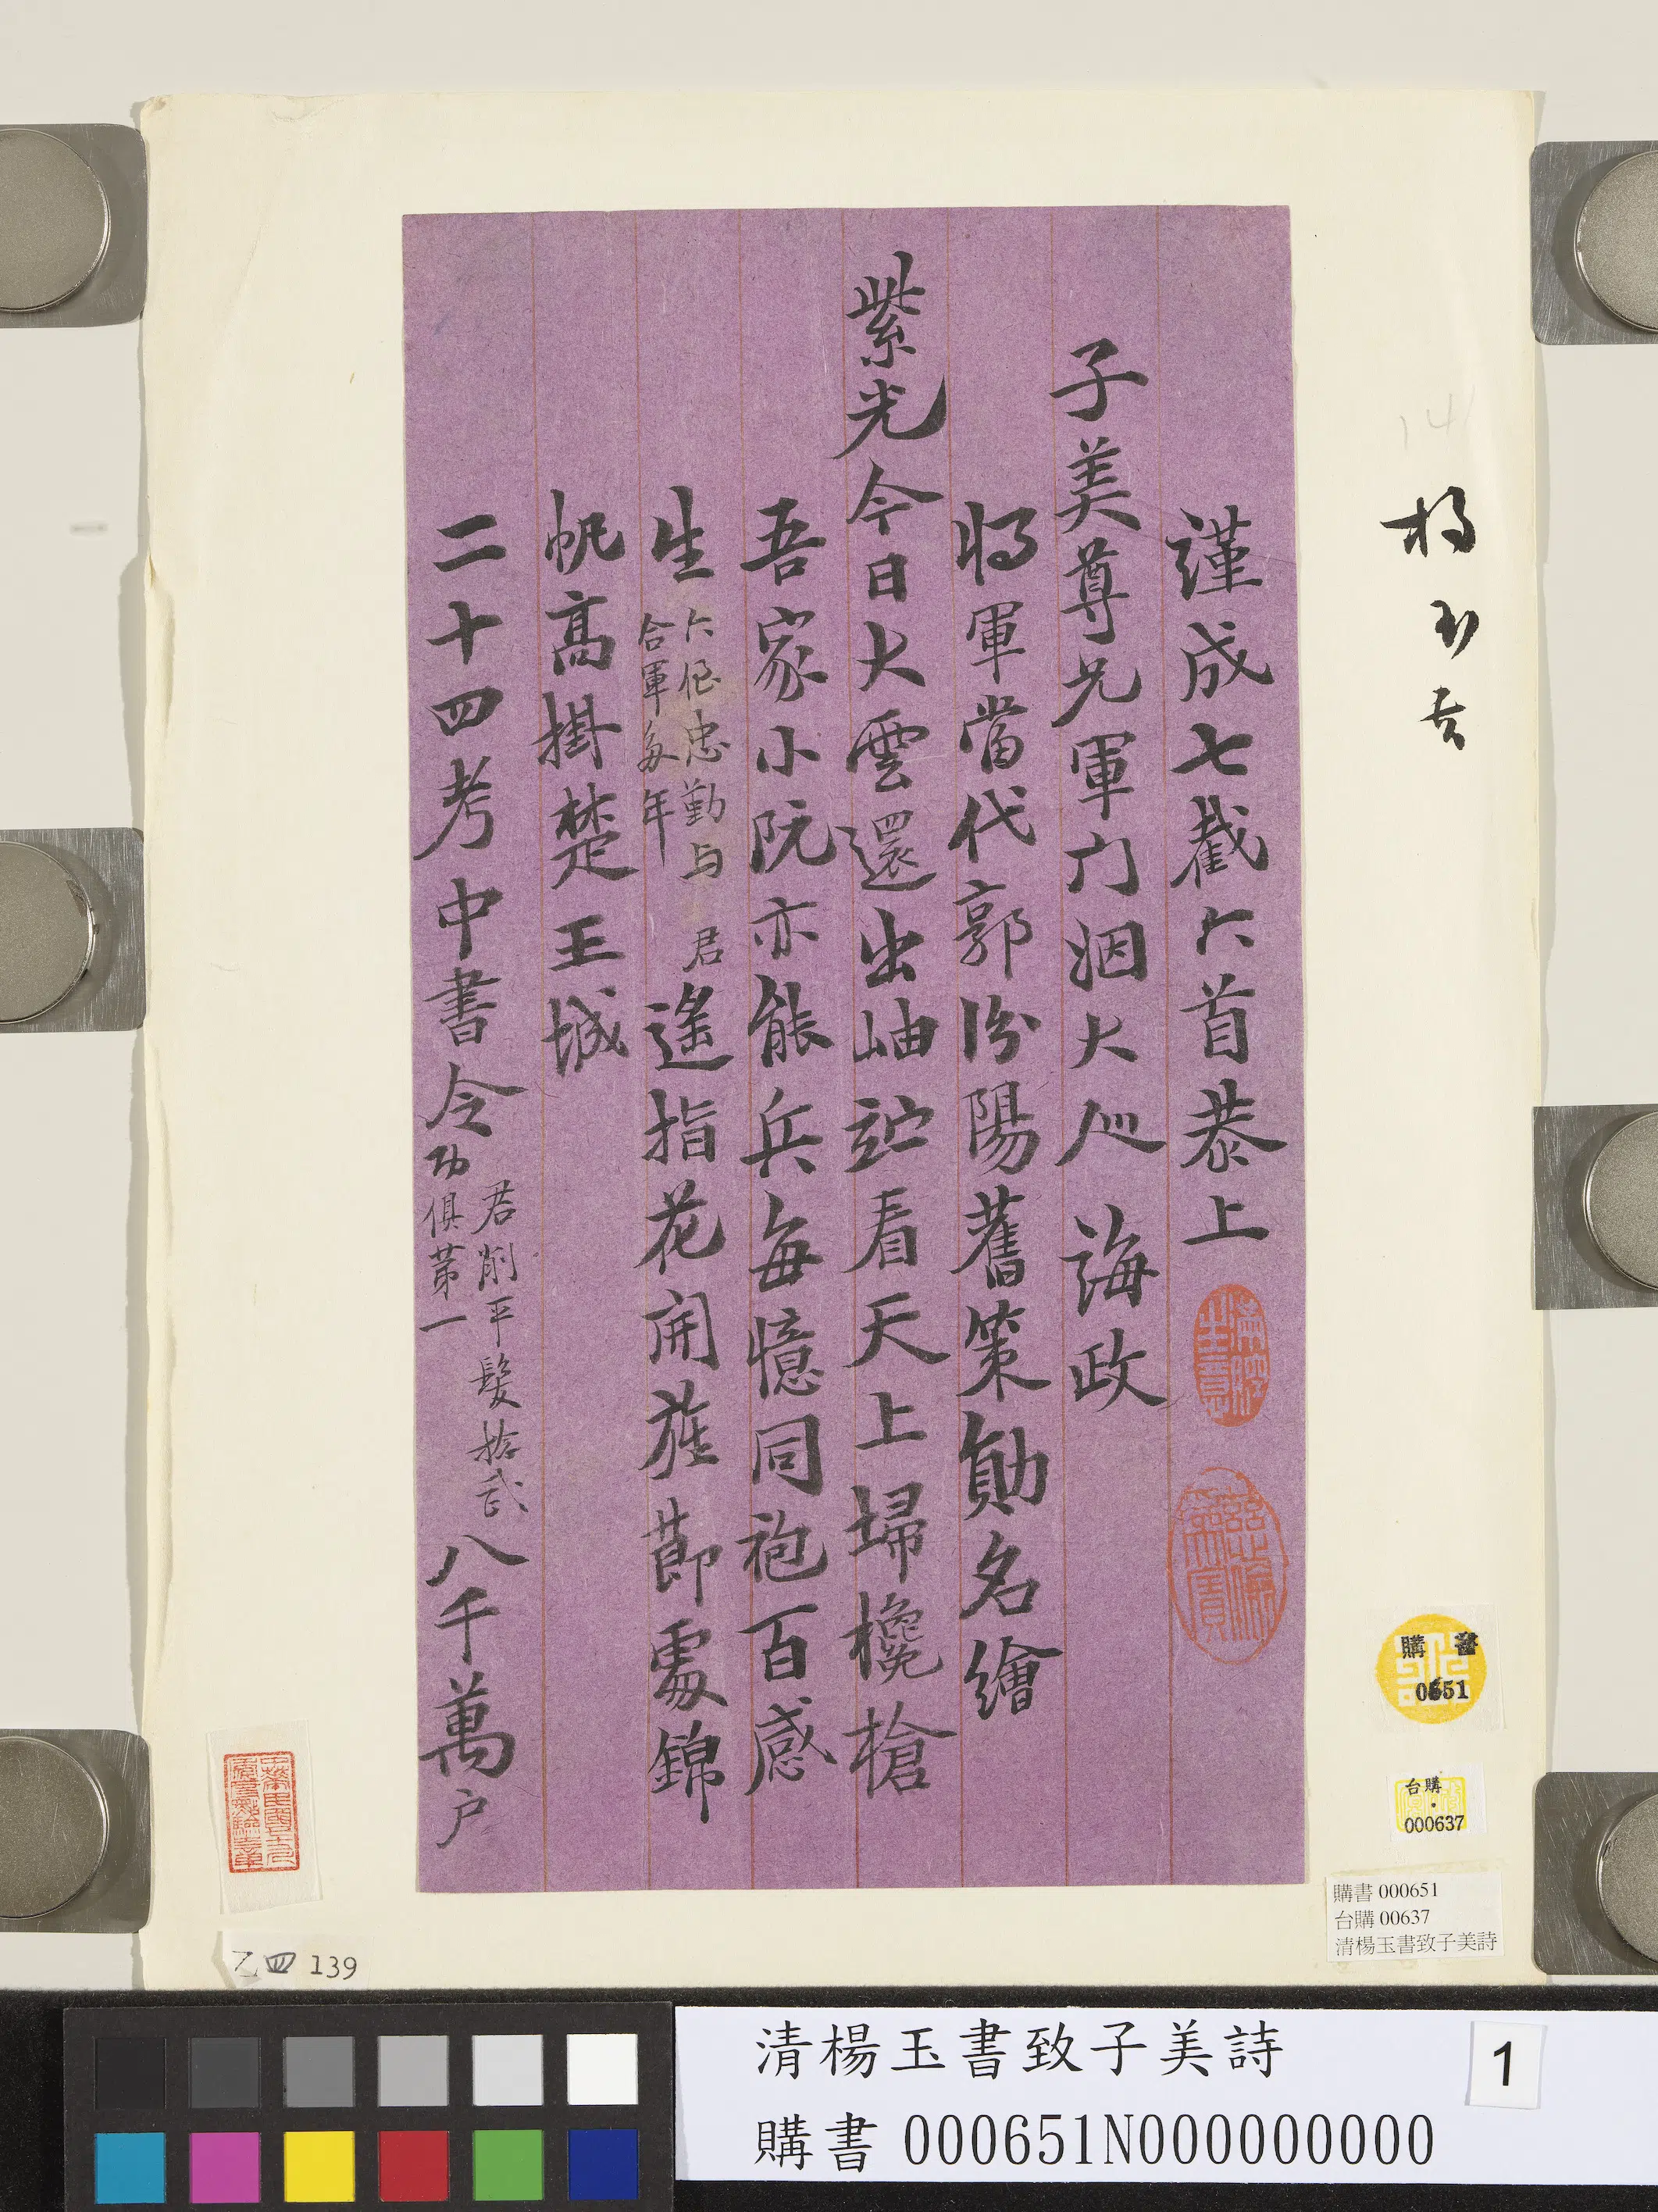 謹成七截六首恭上
子美尊兄軍门洇大人誨政
將軍當代郭汾陽舊策勛名繪
紫光今日大雲還出岫論看天上埽欃槍
吾家小阮亦能兵每憶同袍百感
生
六侄忠勤与君
合軍多年
遙指花開旌節處錦
帆高掛楚王城
二十四考中書令
君削平髮捻武
功俱第一
八千萬户
楊玉書
購書
0651
台購
000637
購書 000651
台購 00637
清楊玉書致子美詩
乙四 139
清楊玉書致子美詩
1
購書000651N000000000